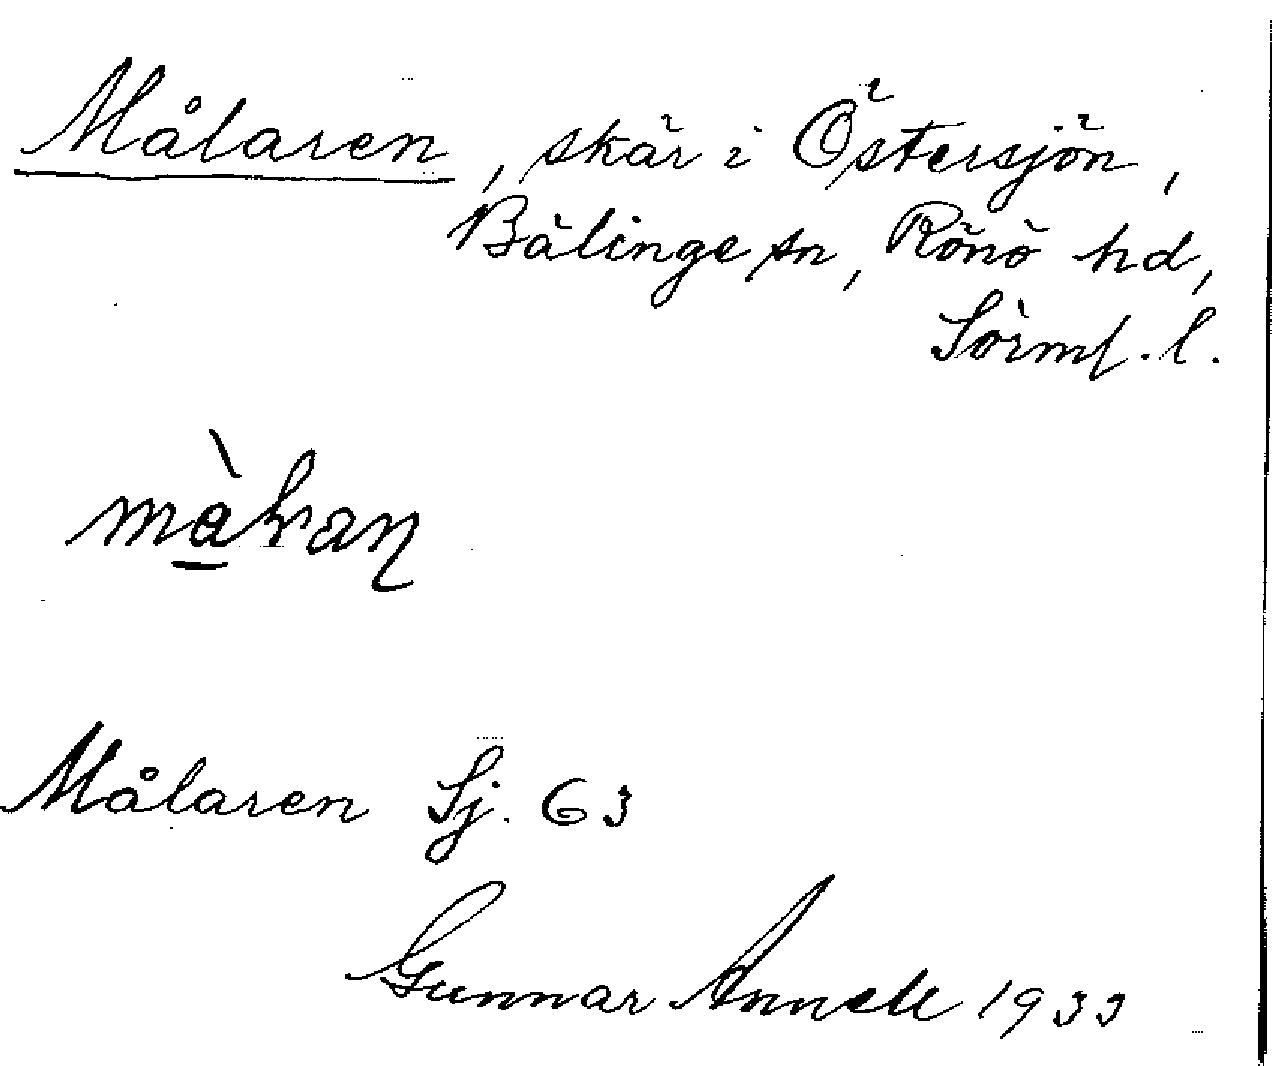 Målaren, skär i Östersjön,
Bälinge sn, Rönö hd,
Sörml. l.
Målaren Sj. 63
Gunnar Annell 1933